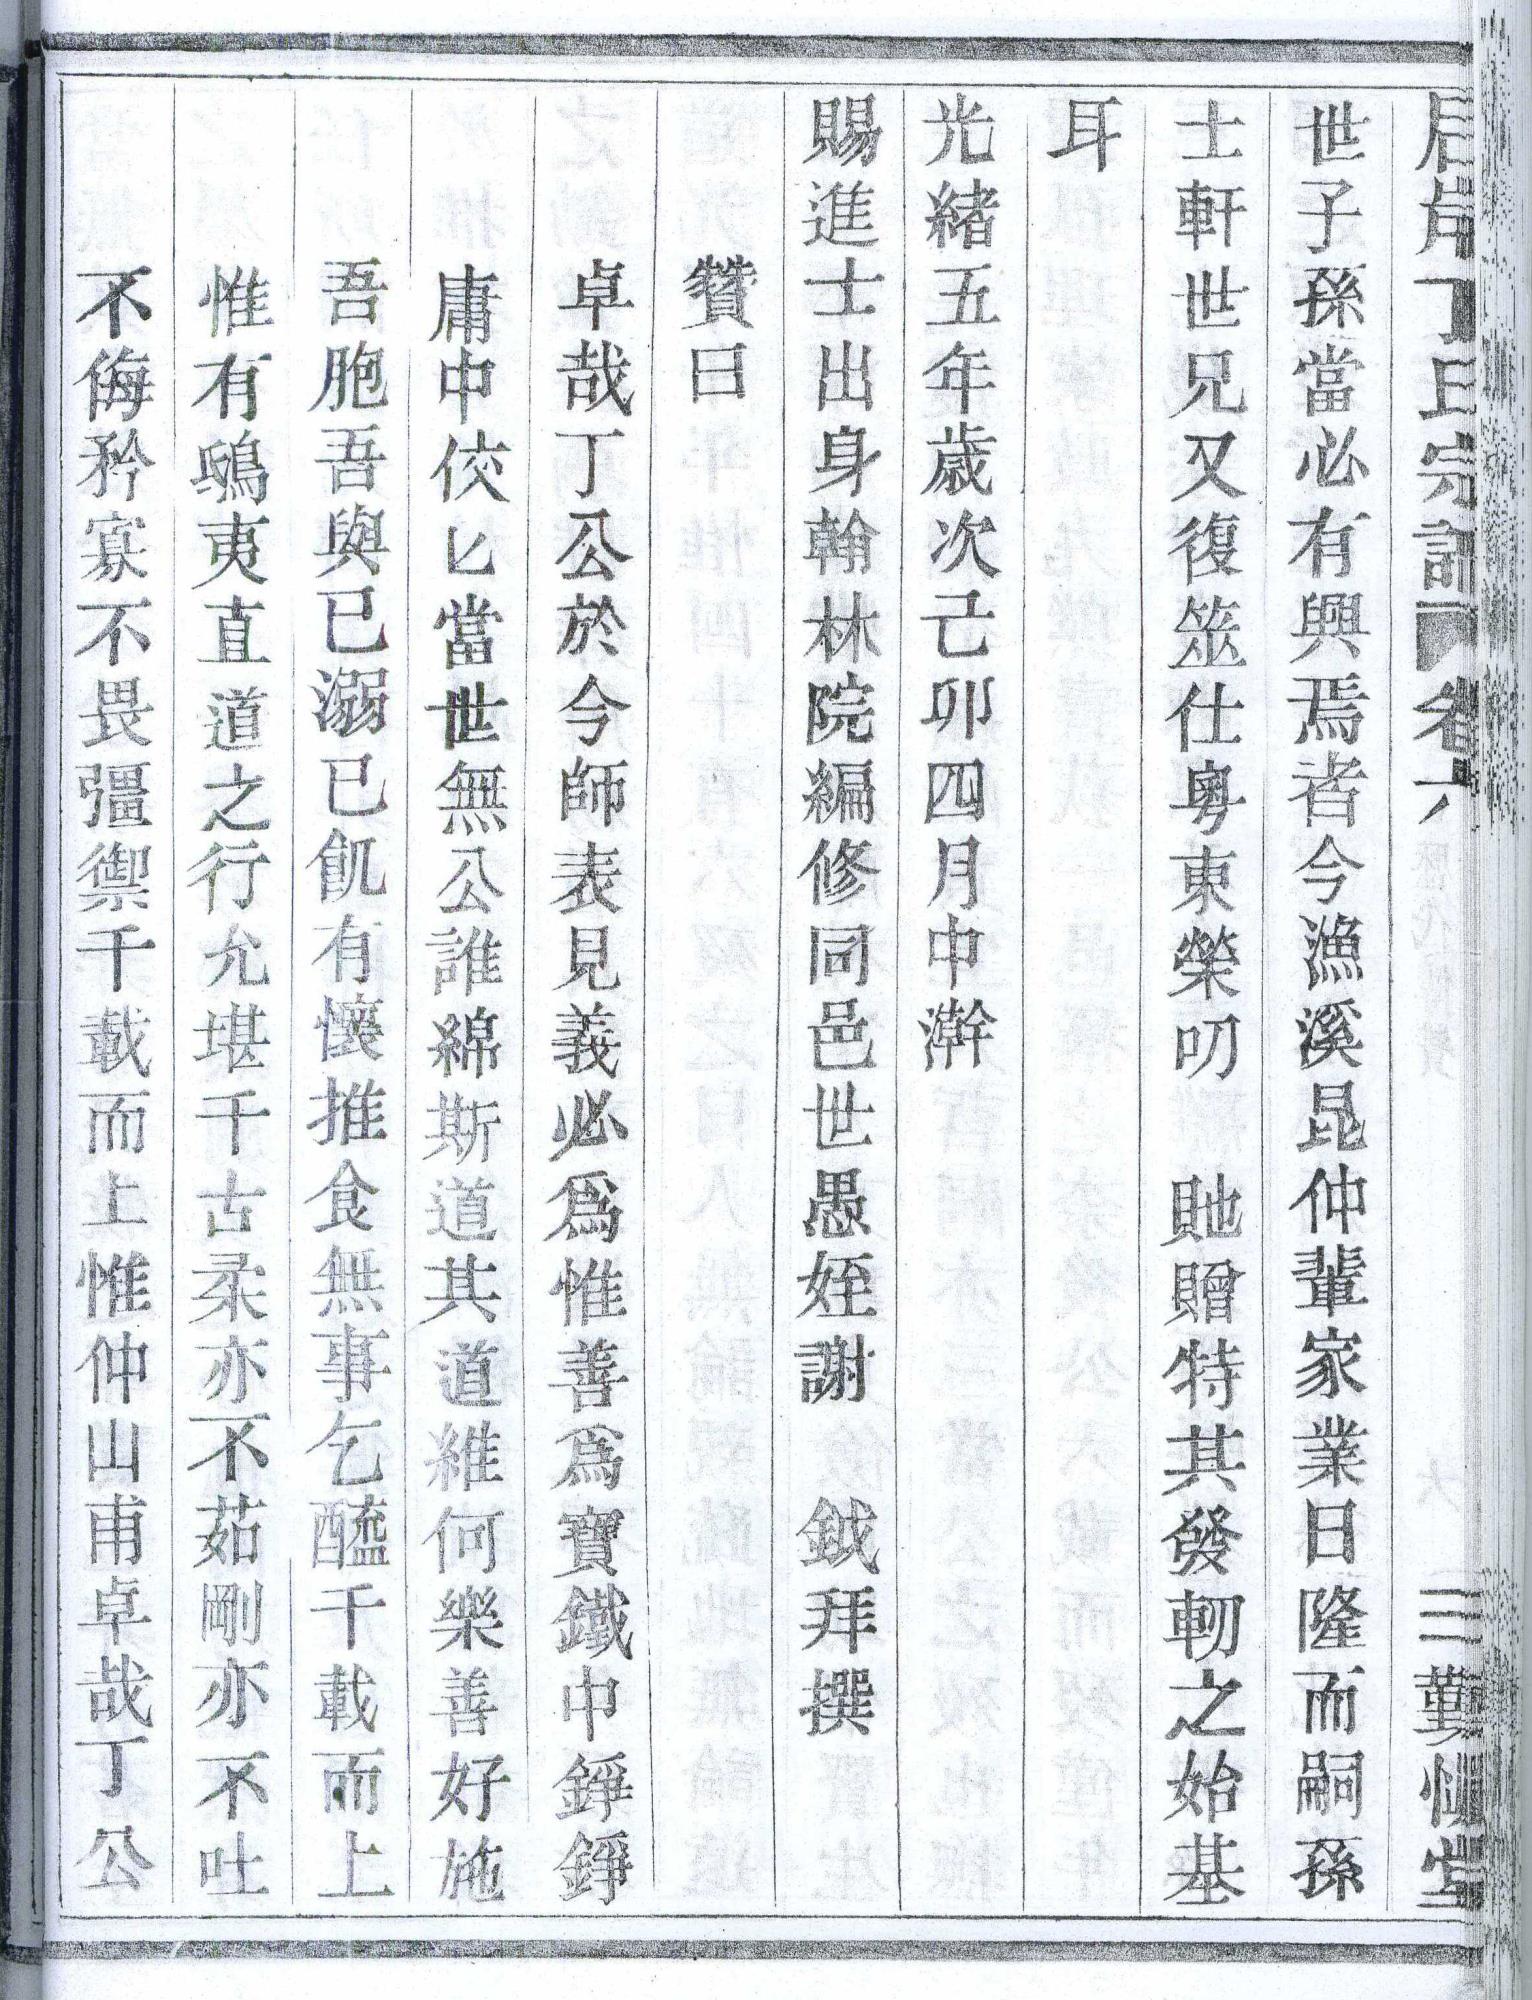 丁氏宗譜 卷六 三勤
世子孫當必有興焉者今漁溪昆仲輩家業日隆而嗣孫
士軒世兄又復筮仕粵東榮叨 貤贈特其發軔之始基
耳
光緒五年歲次己卯四月中澣
賜進士出身翰林院編修同邑世愚姪謝 鉞拜撰
贊曰
卓哉丁公於今師表見義必爲惟善爲寶鐵中錚錚
庸中佼匕當世無公誰綿斯道其道維何樂善好施
吾胞吾與已溺已飢有懷推食無事乞醯千載而上
惟有鴟夷直道之行允堪千古柔亦不茹剛亦不吐
不侮矜寡不畏彊禦千載而上惟仲山甫卓哉丁公